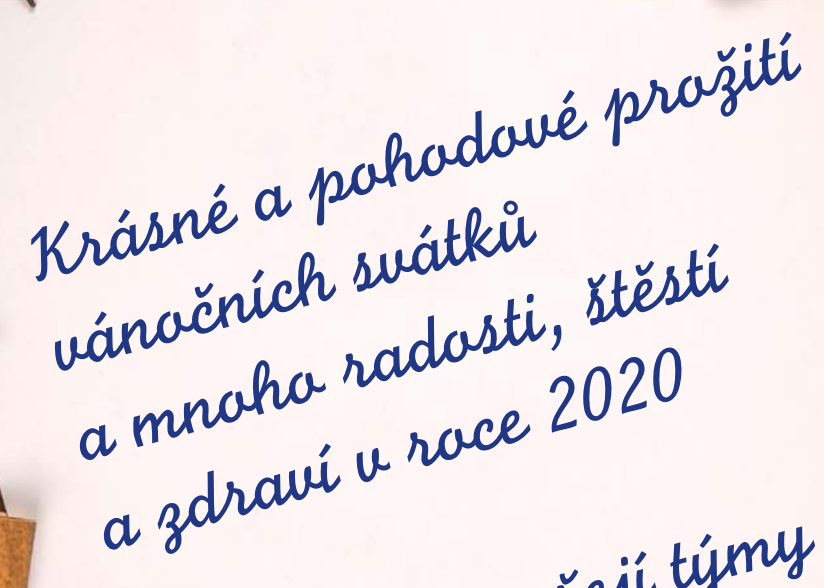 Krásné a pohodové prožití
vánočních svátků
a mnoho radosti, štěstí
a zdraví v roce 2020
týmy